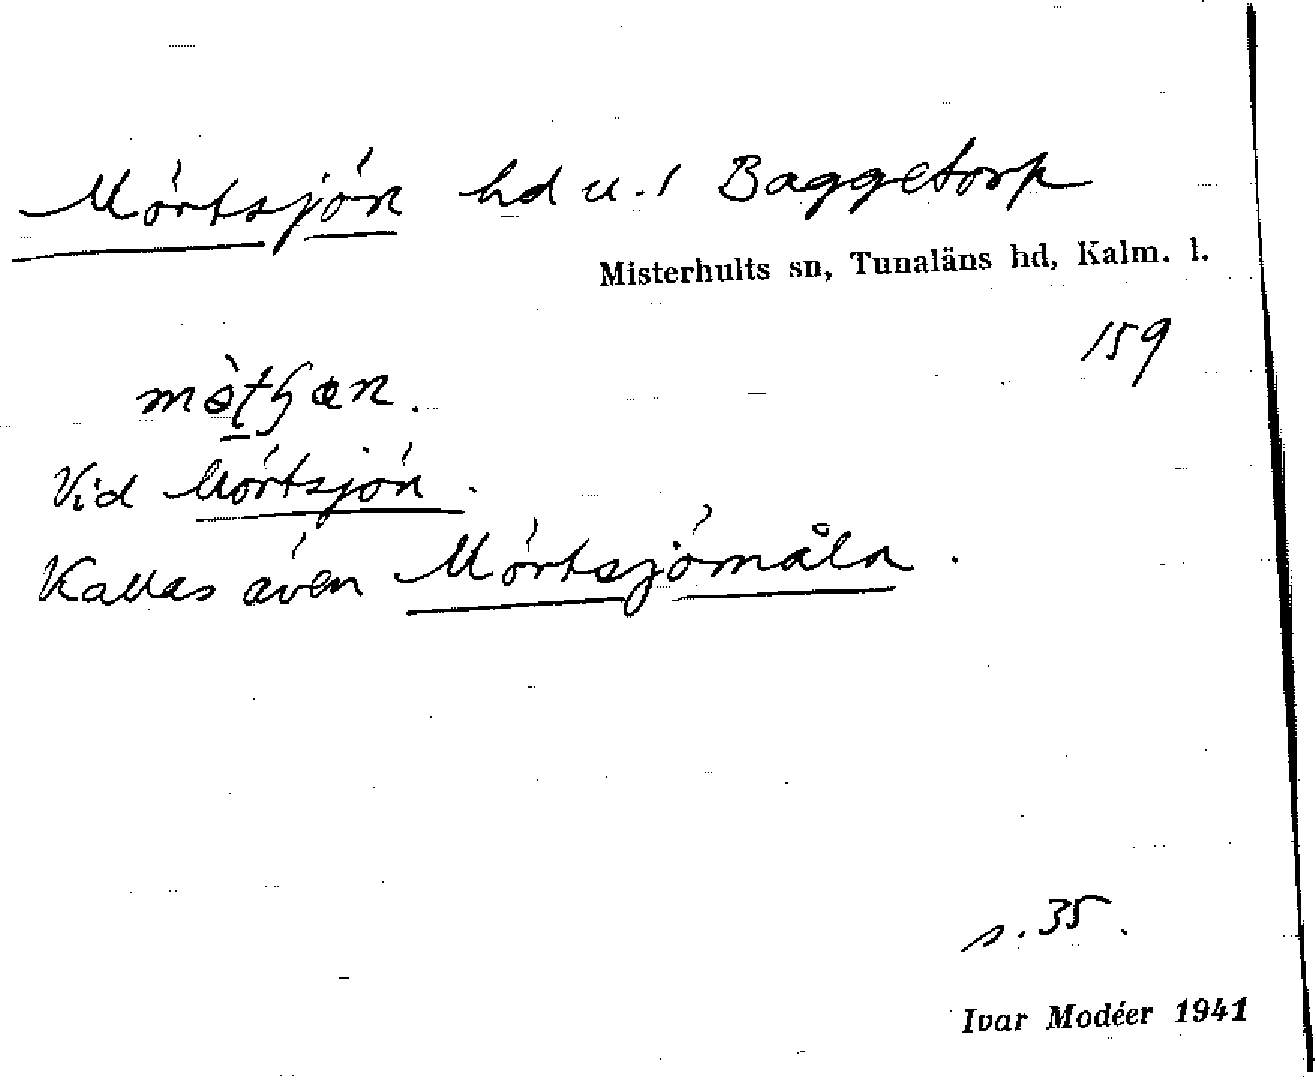 Mörtsjön hd u. Baggetorp
Misterhults sn, Tunaläns hd, Kalm. l.
159
Vid Mörtsjön.
Kallas även Mörtsjömåln.
s. 35.
Ivar Modéer 1941